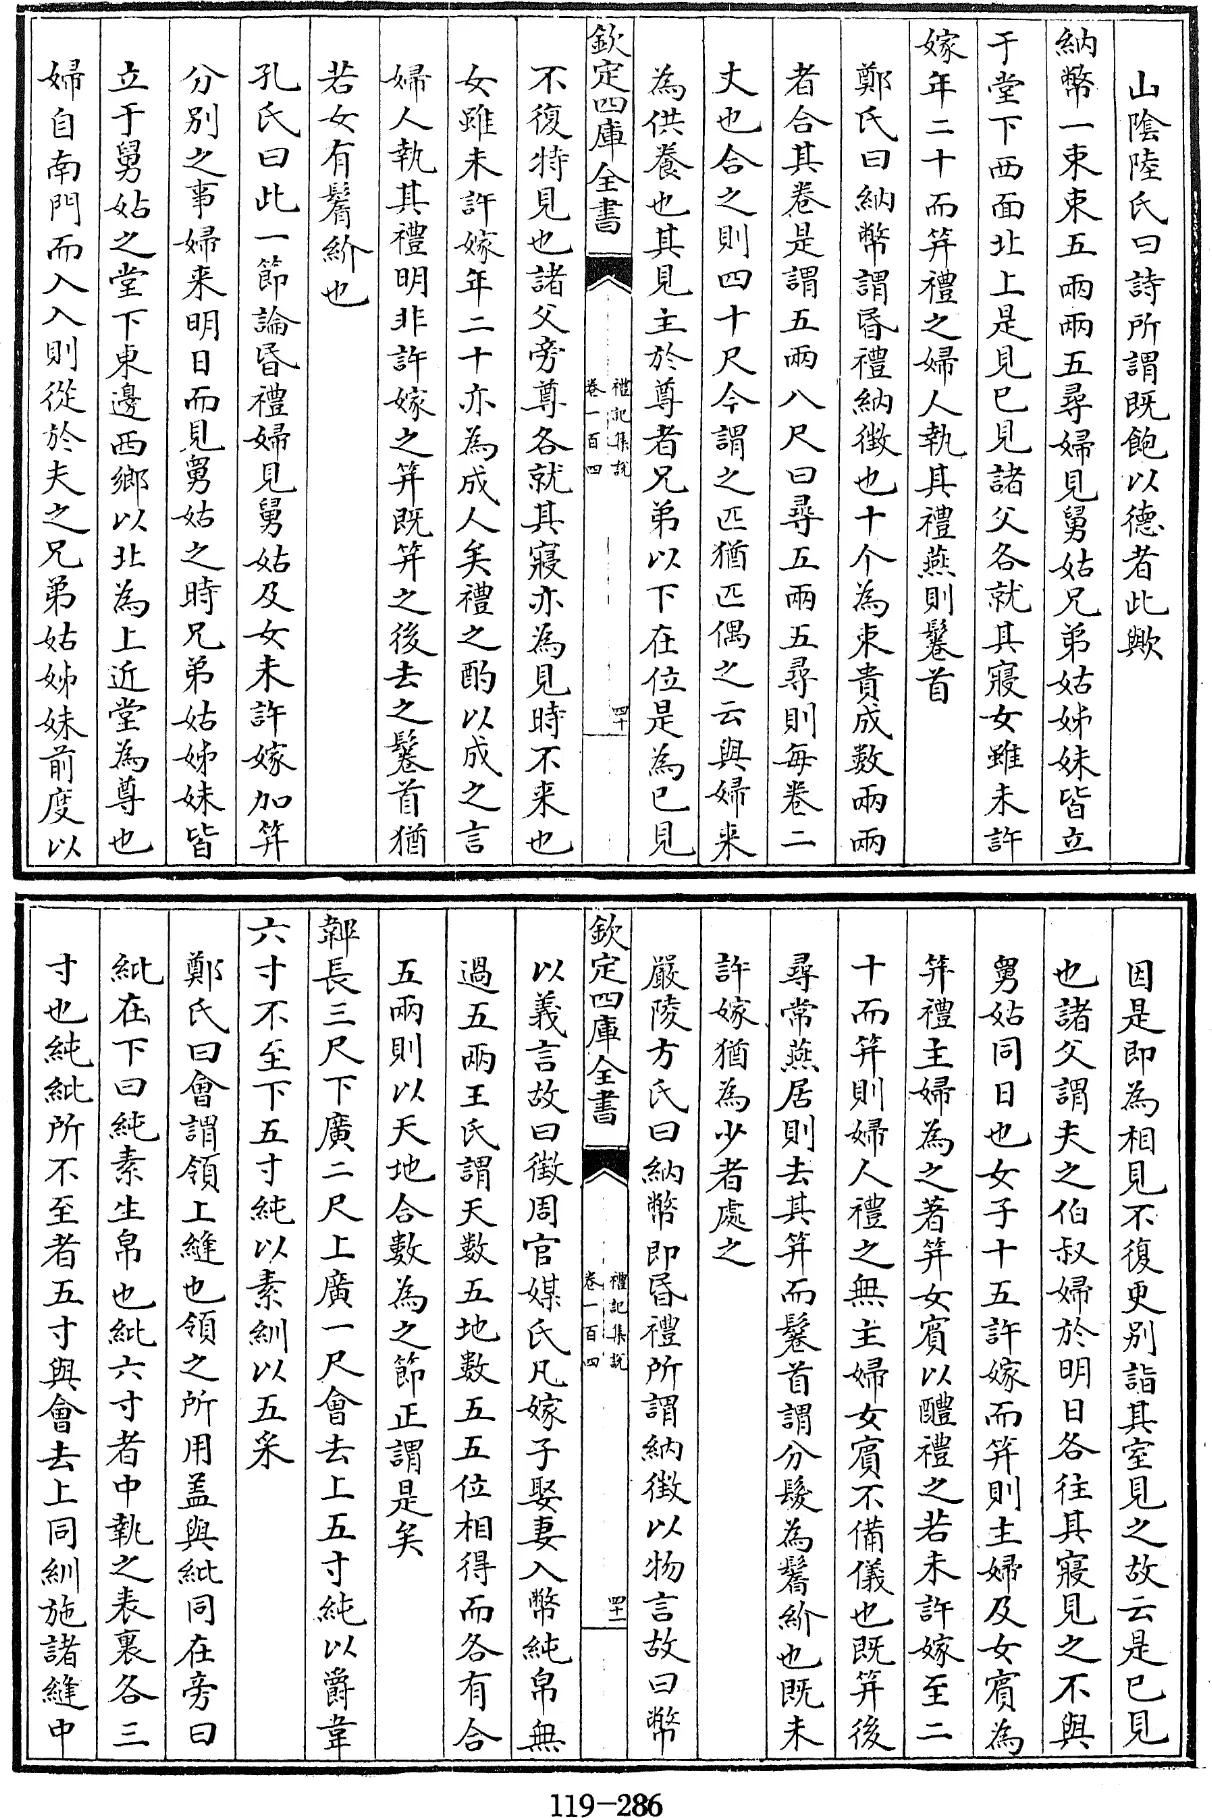 山陰陸氏曰詩所謂既飽以德者此歟
納幣一束束五兩兩五尋婦見舅姑兄弟姑姊妹皆立
于堂下西面北上是見已見諸父各就其寢女雖未許
嫁年二十而笄禮之婦人執其禮燕則鬈首
鄭氏曰納幣謂昏禮納徵也十个為束貴成數兩兩
者合其卷是謂五兩八尺曰尋五兩五尋則每卷二
丈也合之則四十尺今謂之匹猶匹偶之云與婦來
為供養也其見主於尊者兄弟以下在位是為已見
欽定四庫全書
禮記集說
卷一百四
四十
不復特見也諸父旁尊各就其寢亦為見時不来也
女雖未許嫁年二十亦為成人矣禮之酌以成之言
婦人執其禮明非許嫁之笄既笄之後去之鬈首猶
若女有鬌紒也
孔氏曰此一節論昏禮婦見舅姑及女未許嫁加笄
分別之事婦来明日而見舅姑之時兄弟姑姊妹皆
立于舅姑之堂下東邊西鄉以北為上近堂為尊也
婦自南門而入入則從於夫之兄弟姑姊妹前度以
因是即為相見不復更別詣其室見之故云是已見
也諸父謂夫之伯叔婦於明日各往其寢見之不與
舅姑同日也女子十五許嫁而笄則主婦及女賓為
笄禮主婦為之著笄女賓以醴禮之若未許嫁至二
十而笄則婦人禮之無主婦女賓不備儀也既笄後
尋常燕居則去其笄而鬈首謂分髮為鬌紒也既未
許嫁猶為少者處之
嚴陵方氏曰納幣即昏禮所謂納徵以物言故曰幣
欽定四庫全書
禮記集說
卷一百四
四十一
以義言故曰徵周官媒氏凡嫁子娶妻入幣純帛無
過五兩王氏謂天數五地數五五位相得而各有合
五兩則以天地合數為之節正謂是矣
韠長三尺下廣二尺上廣一尺會去上五寸紕以爵韋
六寸不至下五寸純以素紃以五采
鄭氏曰會謂領上縫也領之所用盖與紕同在旁曰
紕在下曰純素生帛也紕六寸者中執之表裏各三
寸也純紕所不至者五寸與會去上同紃施諸縫中
119-286